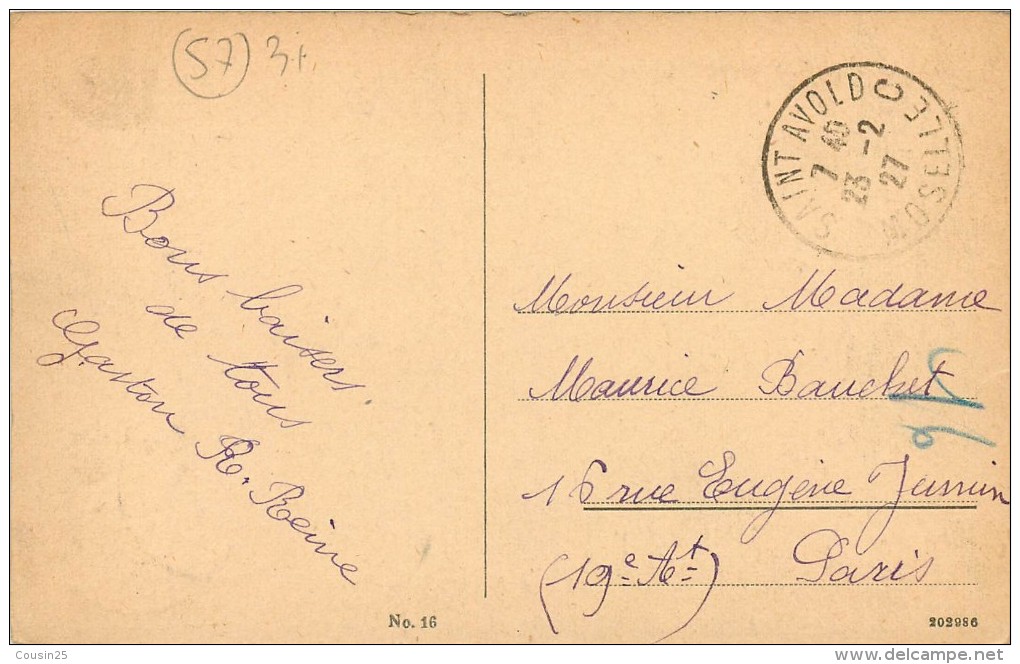 (57) 3+
SAINT AVOLD C MOSELLE
7 40
23 -2
27
Bons baisers
de tous
Gaston R. Reine
Monsieur Madame
Maurice Bauchet
16 rue Eugène Jumin
(19e At)
Paris
No. 16
202986
Cousin25
www.delcampe.net